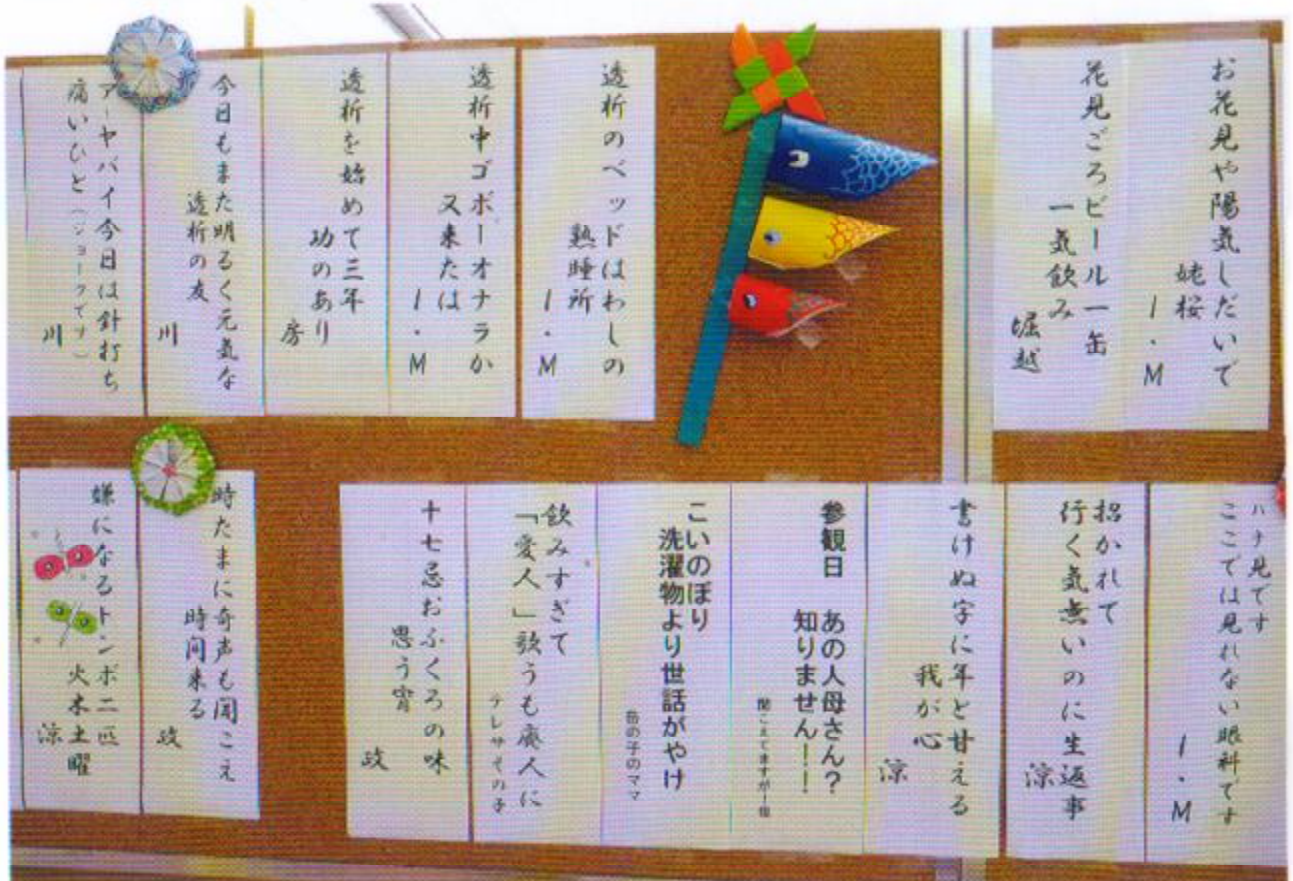 お花見や陽気しだいで
姥桜
I・M
花見ごろビール一缶
一気飲み
堀越
透析のベッドはわしの
熟睡所
I・M
透析中ゴボーオナラか
又来たは
I・M
透析を始めて三年
功のあり
房
今日もまた明るく元気な
透析の友
川
アーヤバイ今日は針打ち
痛いひと(ジョークでリ)
川
ハナ見です
ここでは見れない眼科です
I・M
招かれて
行く気無いのに生返事
涼
書けぬ字に年と甘える
我が心
涼
参観日 あの人母さん?
知りません!!
聞こえてますが!
こいのぼり
洗濯物より世話がやけ
岳の子のママ
飲みすぎて
「愛人」歌うも廃人に
テレサその子
十七忌おふくろの味
思う宵
政
時たまに奇声も聞こえ
時間来る
政
嫌になるトンボ二匹
火木土曜
涼